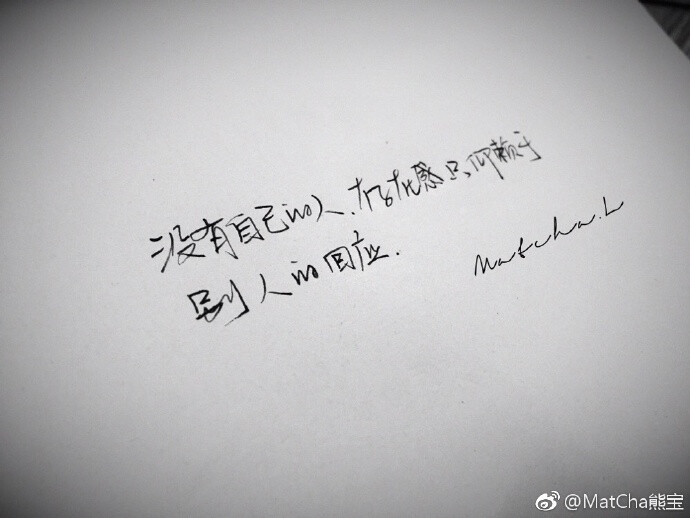 没有自己的人,存在感只仰赖于
别人的回应.
Matcha.L
@MatCha熊宝